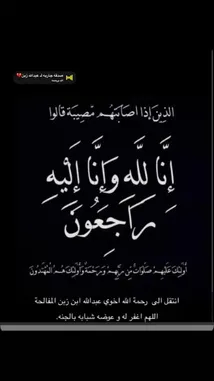 صدقه جاريه لـ عبدالله زبن💔
الذين إذا اصابتهم مصيبة قالوا
إنا لله وإنا إليه
راجعون
أولئك عليهم صلوات من ربهم ورحمة وأولئك هم المهتدون
انتقل الى رحمة الله اخوي عبدالله ابن زبن المفالحة
اللهم اغفر له و عوضه شبابه بالجنه.